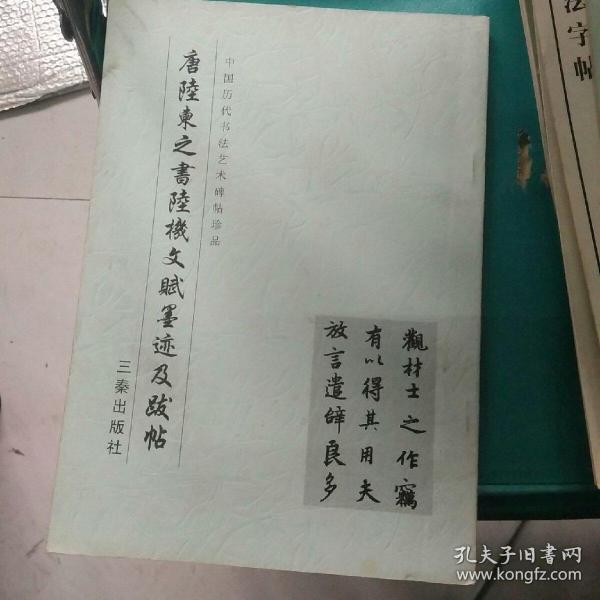 中国历代书法艺术碑帖珍品
唐陸柬之書陸機文賦墨迹及跋帖
三秦出版社
觀材士之作竊
有以得其用夫
放言遣辞良多
法字帖
孔夫子旧书网
www.kongfz.com